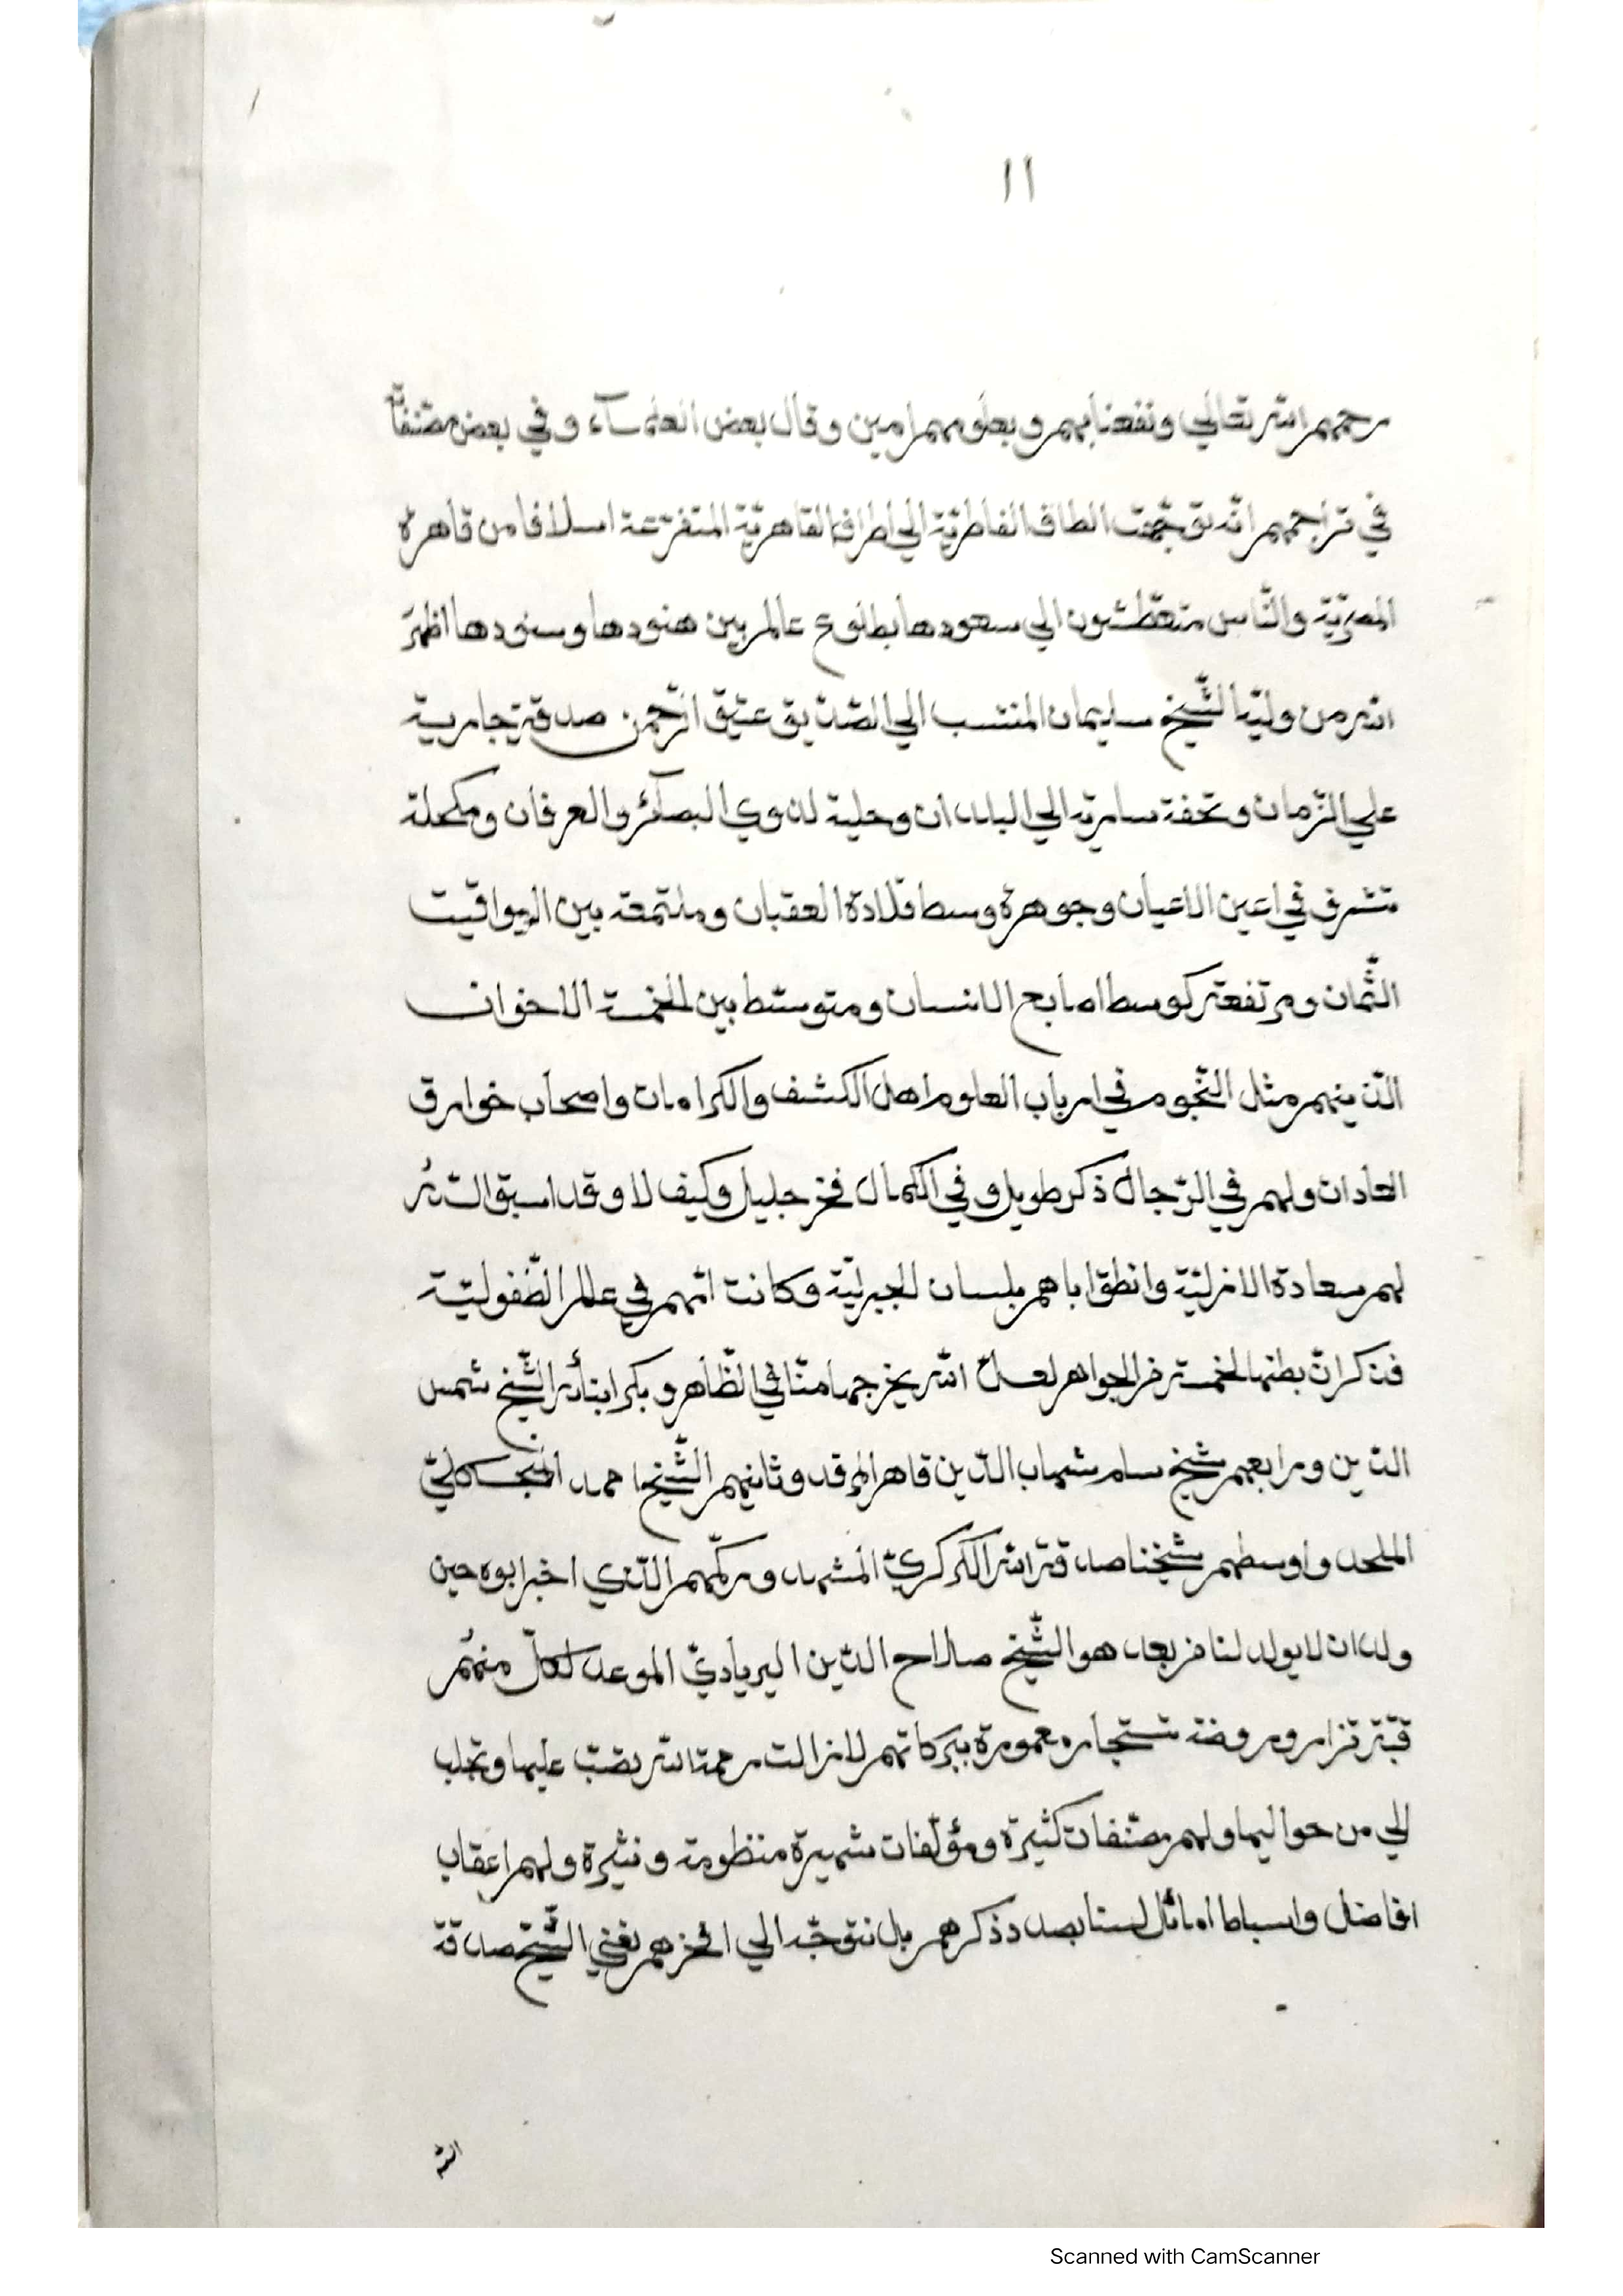 ١١
رحمهم الله تعالي ونفعنا بهم وبعلومهم امين وقال بعض العلمآء وفي بعض مصنفا
في تراجمهم انّه توجّهت الطاف الفاطريّة الي اطراف القاهريّة المتفرّعة اسلافا من قاهرة
المصريّة والنّاس متعطّشون الي سعودها بطلوع عالم بين هنودها وسنودها اظهرَ
الله من وليّه الشّيخ سليمان المنتسب الي الصّدّيق عتيق الرّحمن صدقة جارية
علي الزّمان وتحفة سارية الي البلدان وحلية لذوي البصآئر والعرفان ومكحلة
تشرف في اعين الاعيان وجوهرة وسط قلادة العقبان وملتمعة بين اليواقيت
الثّمان ومرتفعة كوسط اصابع الانسان ومتوسّط بين الخمسة الاخوان
الّذينهم مثل النّجوم في ارباب العلوم اهل الكشف والكرامات واصحاب خوارق
العادات ولهم في الرّجال ذكر طويل وفي الكمال فخر جليل وكيف لا وقد اسبق اللهُ
لهم سعادة الازليّة وانطق اباهم بلسان الجبريّة وكانت امّهم في عالم الطّفوليّة
فذكر انّ بطنها لخمسة من الجواهر لعل الله يخرجها منّا في الظّاهر وبكر ابنائه الشّيخ شمس
الدّين ورابعهم شيخ سلم شهاب الدّين قاهر المرقد وثانيهم الشّيخ احمد
الملحد واوسطهم شيخنا صدقة الله الكركريّ المشهد وركّهم الّذي اخبر ابوه حين
ولد ان لا يولد لنا من بعد هو الشّيخ صلاح الدّين اليرياديّ الموعد لكلّ منهُم
قبّة تزار وروضة تستجار معمورة ببركاتهم لا زالت رحمة الله تصبّ عليها وتجلب
الي من حواليها ولهم مصنّفات كثيرة ومؤلّفات شهيرة منظومة ونثيرة ولهم اعقاب
افاضل واسباط اماثل لسنا بصدد ذكرهم بل نتوجّه الي افخرهم نعني الشّيخ صدقة
الله
Scanned with CamScanner